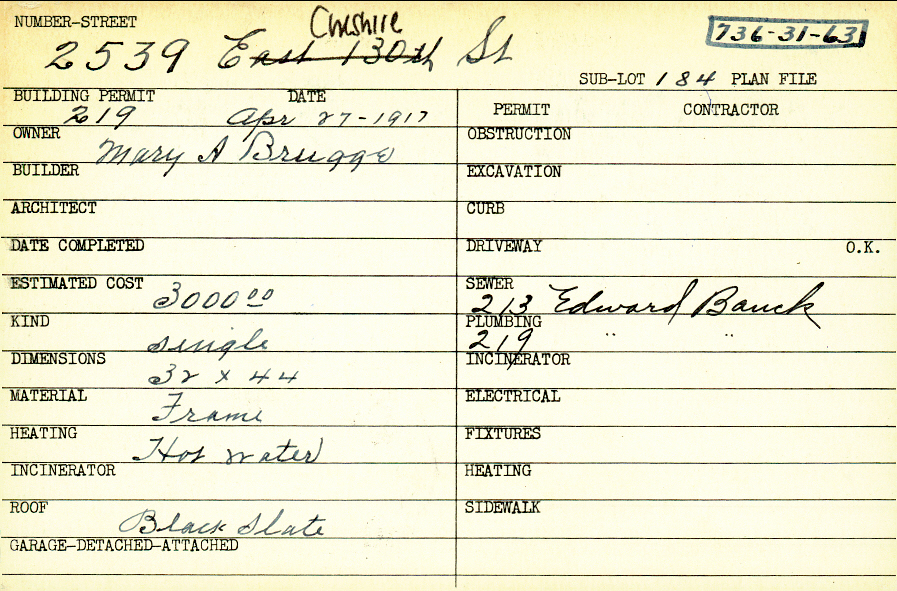 NUMBER-STREET Cheshire 736-31-63
2539 East 130th St
SUB-LOT 184 PLAN FILE
BUILDING PERMIT DATE
219 Apr 27-1917
PERMIT CONTRACTOR
OWNER Mary A Brugge
BUILDER
ARCHITECT
DATE COMPLETED
ESTIMATED COST
3000 00
KIND
single
DIMENSIONS
32 x 44
MATERIAL
Frame
HEATING
Hot water
INCINERATOR
ROOF
Black Slate
GARAGE-DETACHED-ATTACHED
OBSTRUCTION
EXCAVATION
CURB
DRIVEWAY O.K.
SEWER
213 Edward Bauck
PLUMBING
219 " "
INCINERATOR
ELECTRICAL
FIXTURES
HEATING
SIDEWALK